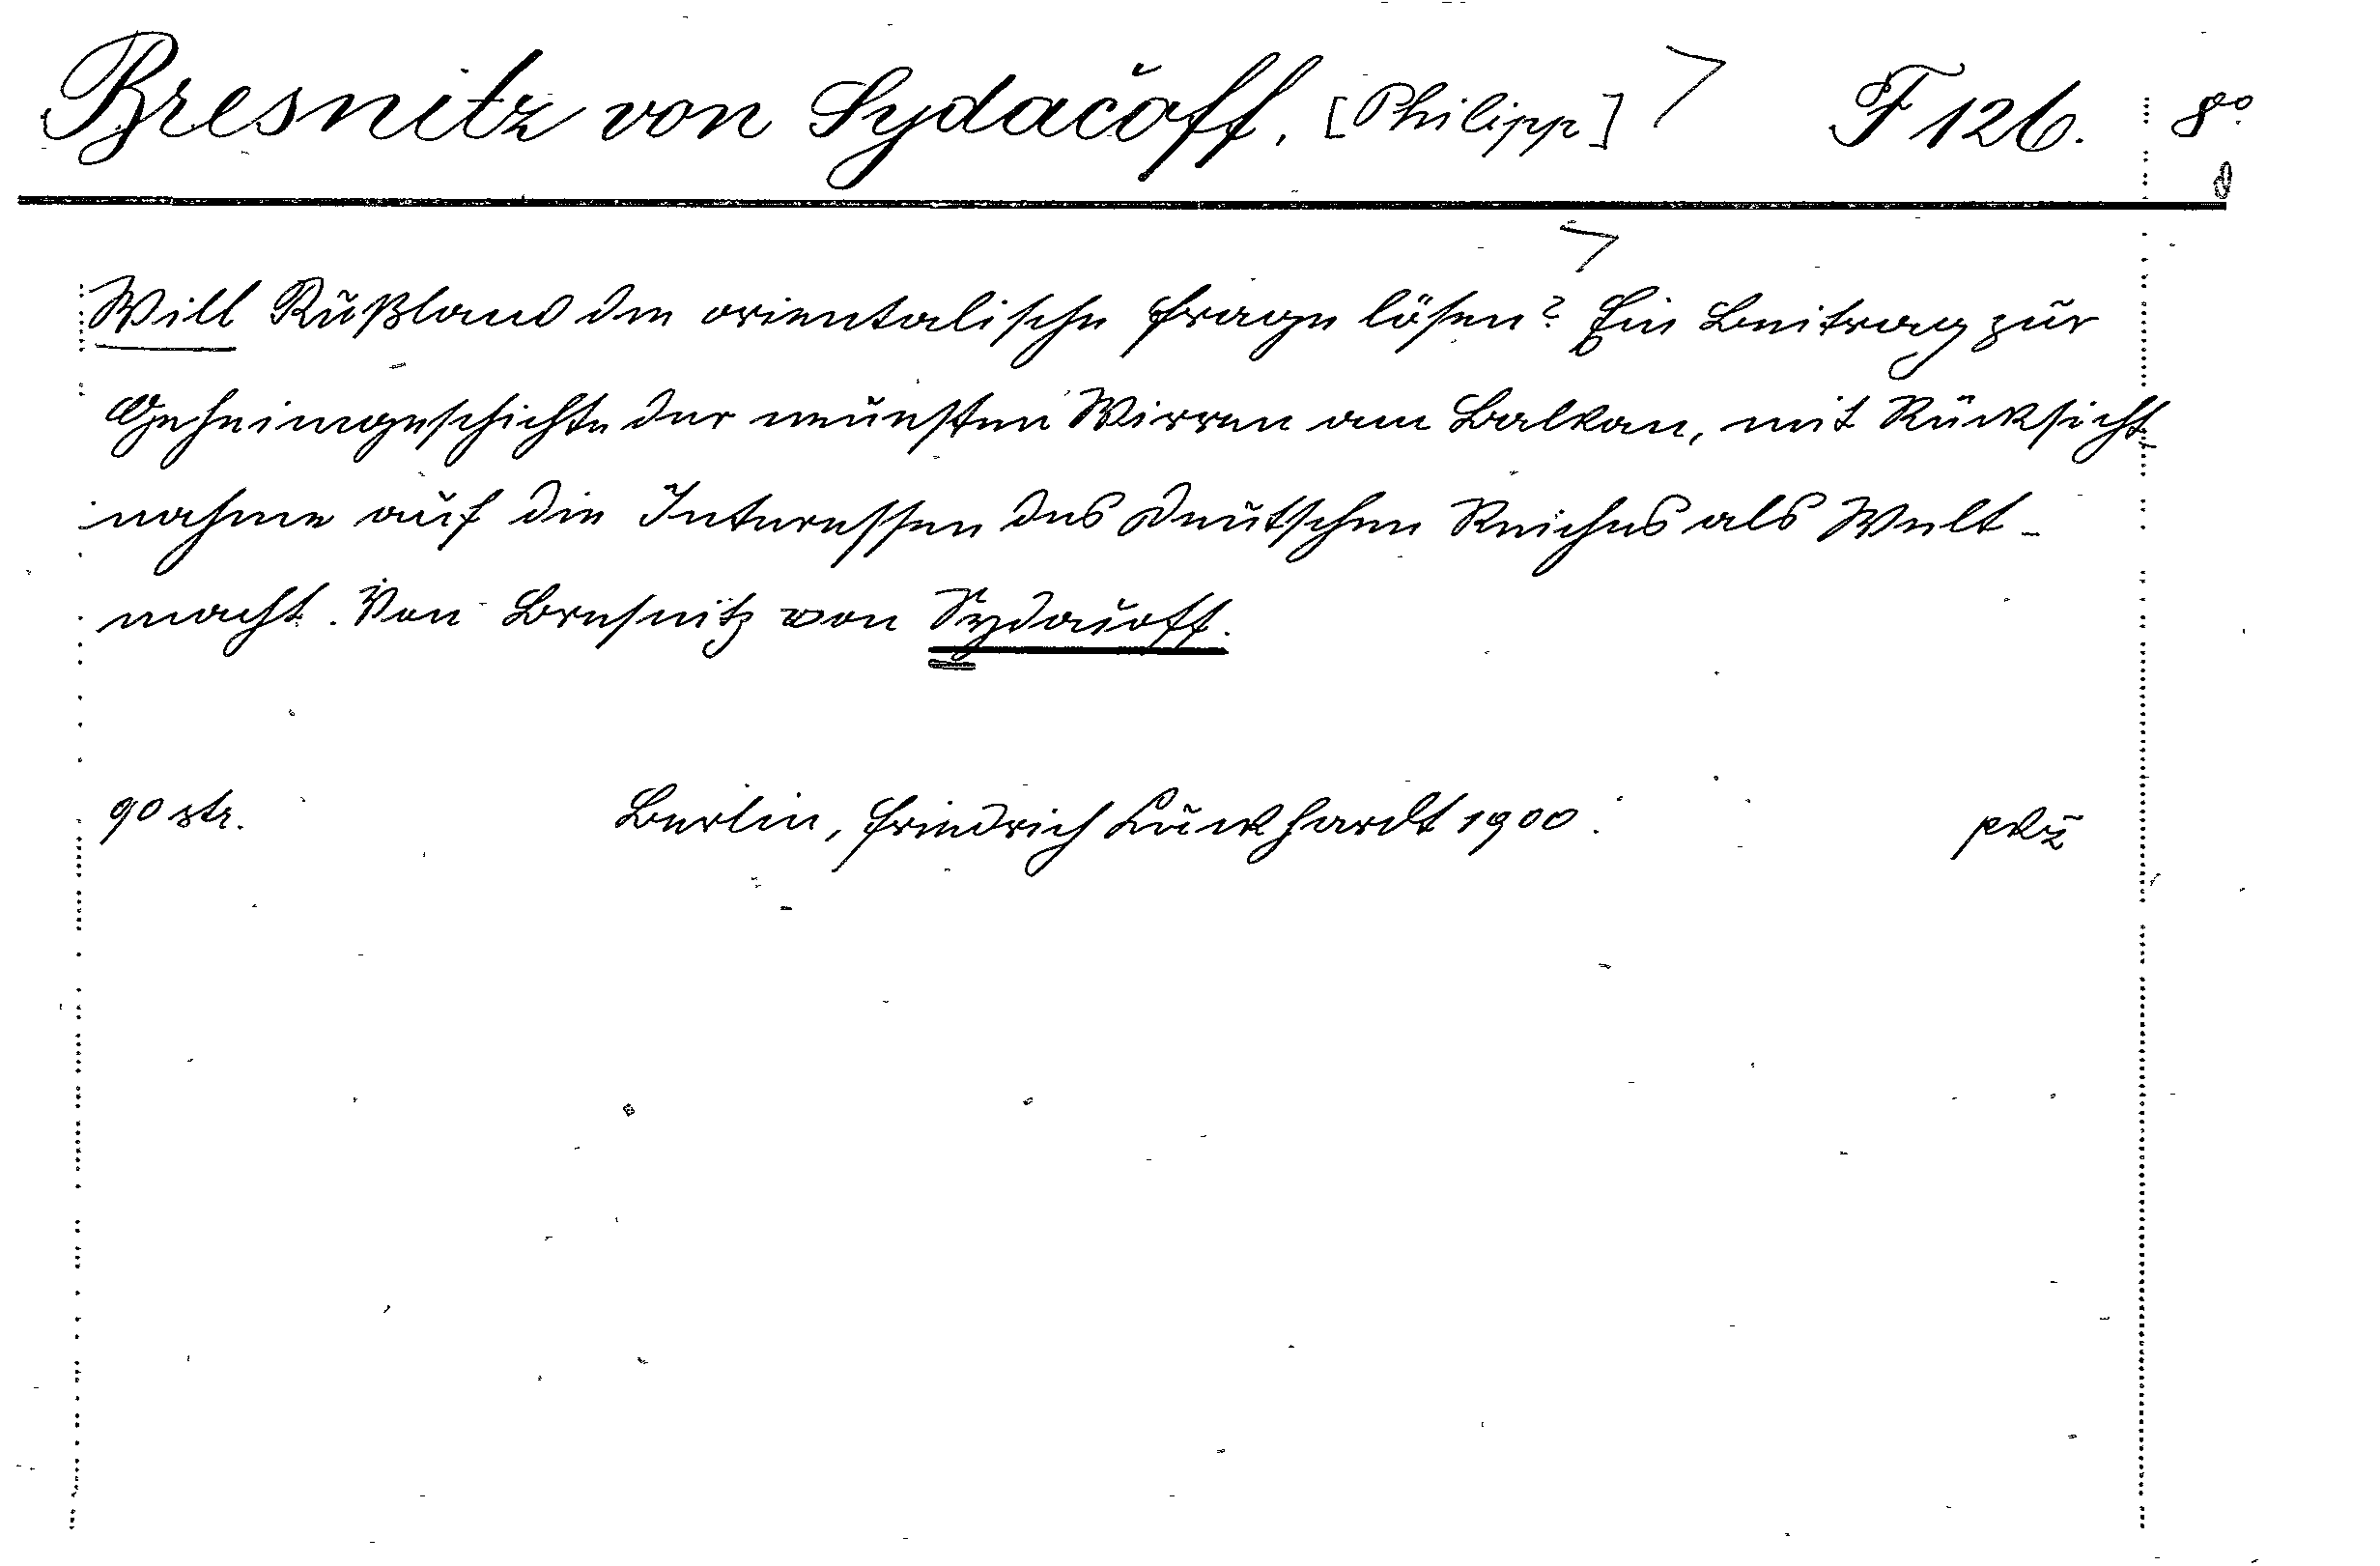 Bresnitz von Sydačoff, [Philipp] F 126. 8°
Will Rußland die orientalische Frage lösen? Ein Beitrag zur
Geheimgeschichte der neuesten Wirren am Balkan, mit Rücksicht
nahme auf die Interessen des Deutschen Reiches als Welt-
macht. Von Bresnitz von Sydačoff.
90 str. Berlin, Friedrich Luckhardt 1900.